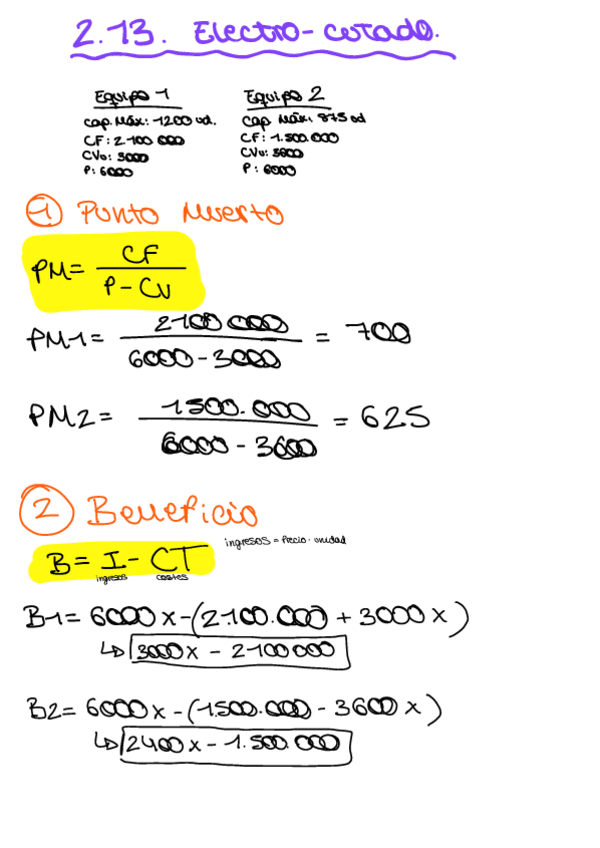 2.13. Electro-cerado.
Equipo 1
cap. Máx: 1200 ud.
CF: 2100 000
CVu: 3000
P: 6000
Equipo 2
Cap Máx: 875 ud
CF: 1.500.000
CVu: 3600
P: 6000
① Punto Muerto
PM = CF / P - CV
PM1 = 2100 000 / 6000 - 3000 = 700
PM2 = 1500.000 / 6000 - 3600 = 625
② Beneficio
ingresos = Precio · unidad
B = I - CT
ingresos costes
B1 = 6000 x - (2100.000 + 3000 x)
↳ 3000x - 2100000
B2 = 6000 x - (1.500.000 - 3600 x)
↳ 2400 x - 1.500.000